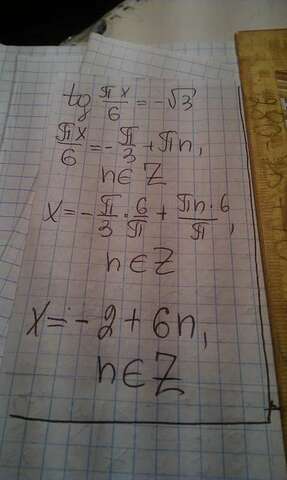 tg πx/6 = -√3
πx/6 = -π/3 + πn,
n∈Z
x = -π/3 · 6/π + πn·6/π,
n∈Z
x = -2 + 6n,
n∈Z